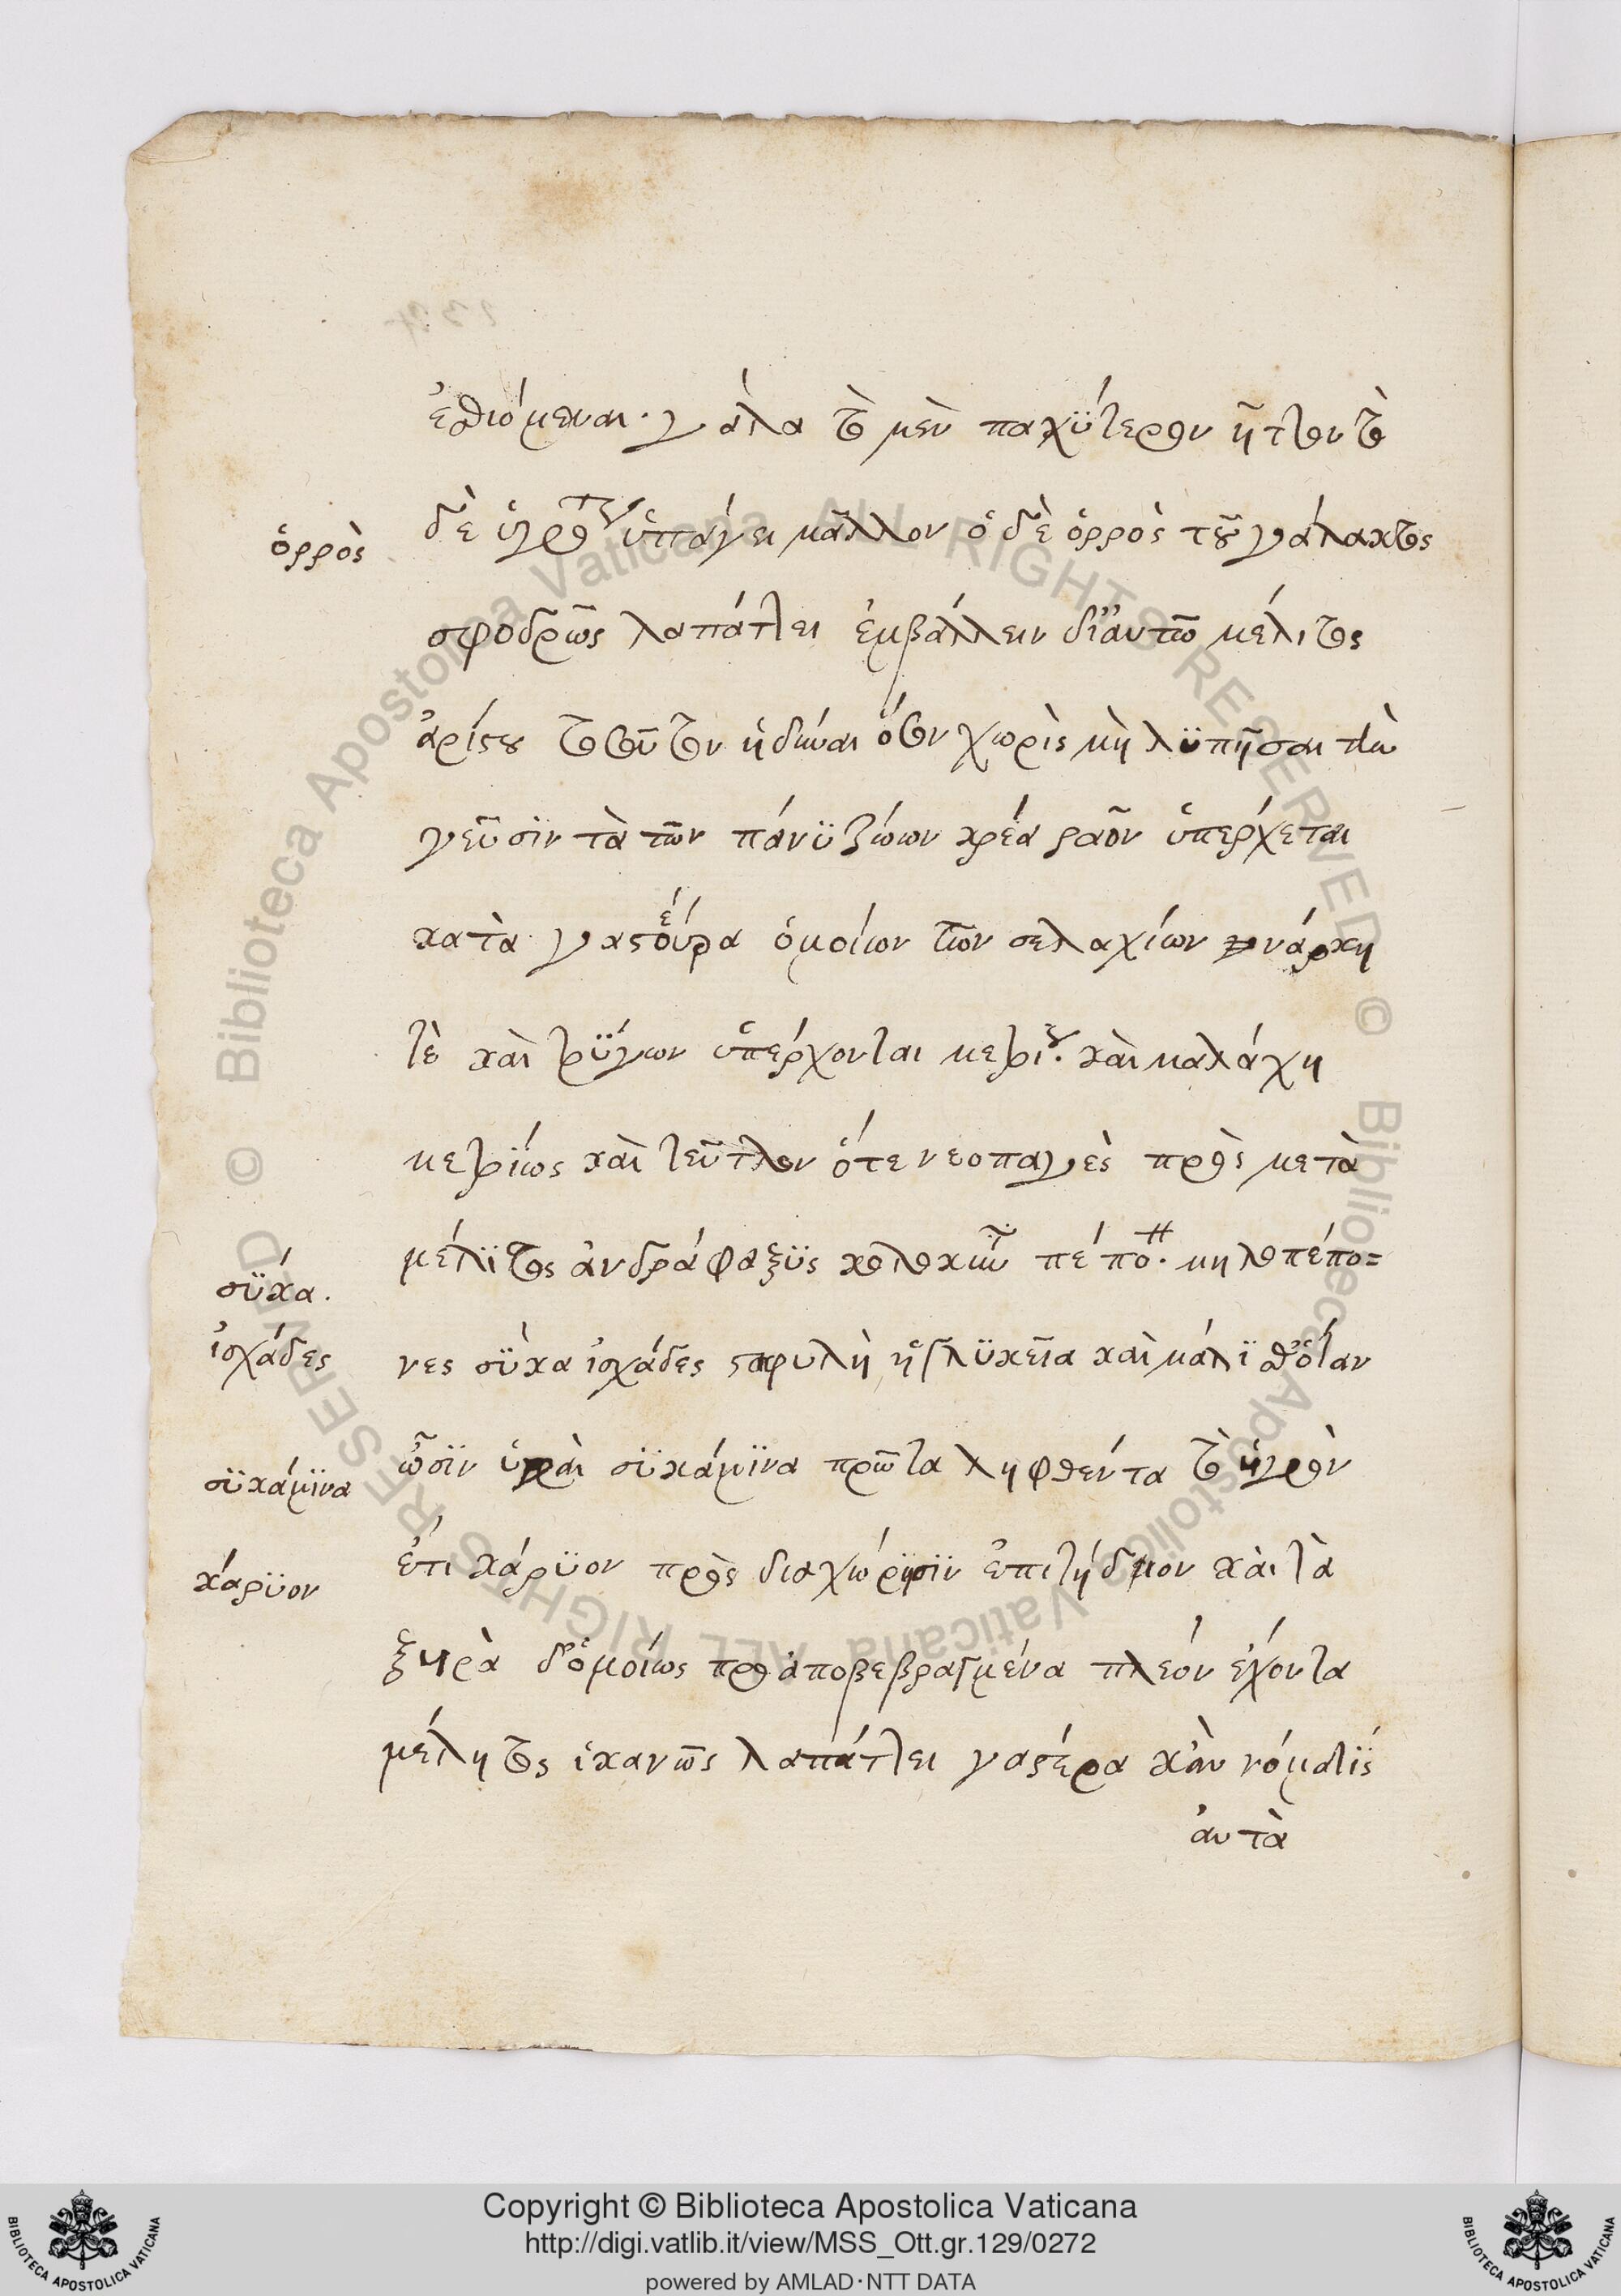 ἐσθιόμεναι· γάλα τὸ μὲν παχϋτερον ἧττον τὸ
ὀρρὸς
δὲ ὑγρότερον ὑπάγει μᾶλλον ὁ δὲ ὀρρὸς τοῦ γάλακτος
σφοδρῶς λαπάττει ἐμβάλλειν δὲ αὐτῶ μέλιτος
ἀρίστου τοσοῦτον ἡδῦναι ὅσον χωρὶς μὴ λϋπῆσαι τὴν
γεῦσϊν τὰ τῶν πάνϋ ζώων κρέα ῥαὸν ὑπέρχεται
κατὰ γαστέρα ὁμοίων τῶν σελαχίων νάρκη
τὲ καὶ τρϋγων ὑπέρχονται μετρι. καὶ μαλάχη
μετρίως καὶ τεῦτλον ὅτε νεοπαγὲς πρὸς μετὰ
σϋκα.
μέλϊτος ἀνδράφαξϋς κολοκϋν πέπο. μηλοπέπο=
ἰσχάδες
νες σϋκα ἰσχάδες σταφυλὴ ἡ γλϋκεῖα καὶ μάλϊσθ' ὅταν
συκάμϊνα
ὦσϊν ὑγραὶ συκάμϊνα πρῶτα ληφθέντα τὸ ὑγρὸν
κάρϋον
ἔτι κάρϋον πρὸς διαχώρησϊν ἐπιτήδειον καὶ τὰ
ξηρὰ δ' ὁμοίως προαποβεβραγμένα πλέον ἔχοντα
μέλητος ἱκανῶς λαπάττει γαστέρα κἂν νόμα τϊς
αὐτὰ
Copyright © Biblioteca Apostolica Vaticana
http://digi.vatlib.it/view/MSS_Ott.gr.129/0272
powered by AMLAD·NTT DATA
BIBLIOTECA APOSTOLICA VATICANA
BIBLIOTECA APOSTOLICA VATICANA
© Biblioteca Apostolica Vaticana ALL RIGHTS RESERVED © Biblioteca Apostolica Vaticana ALL RIGHTS RESERVED